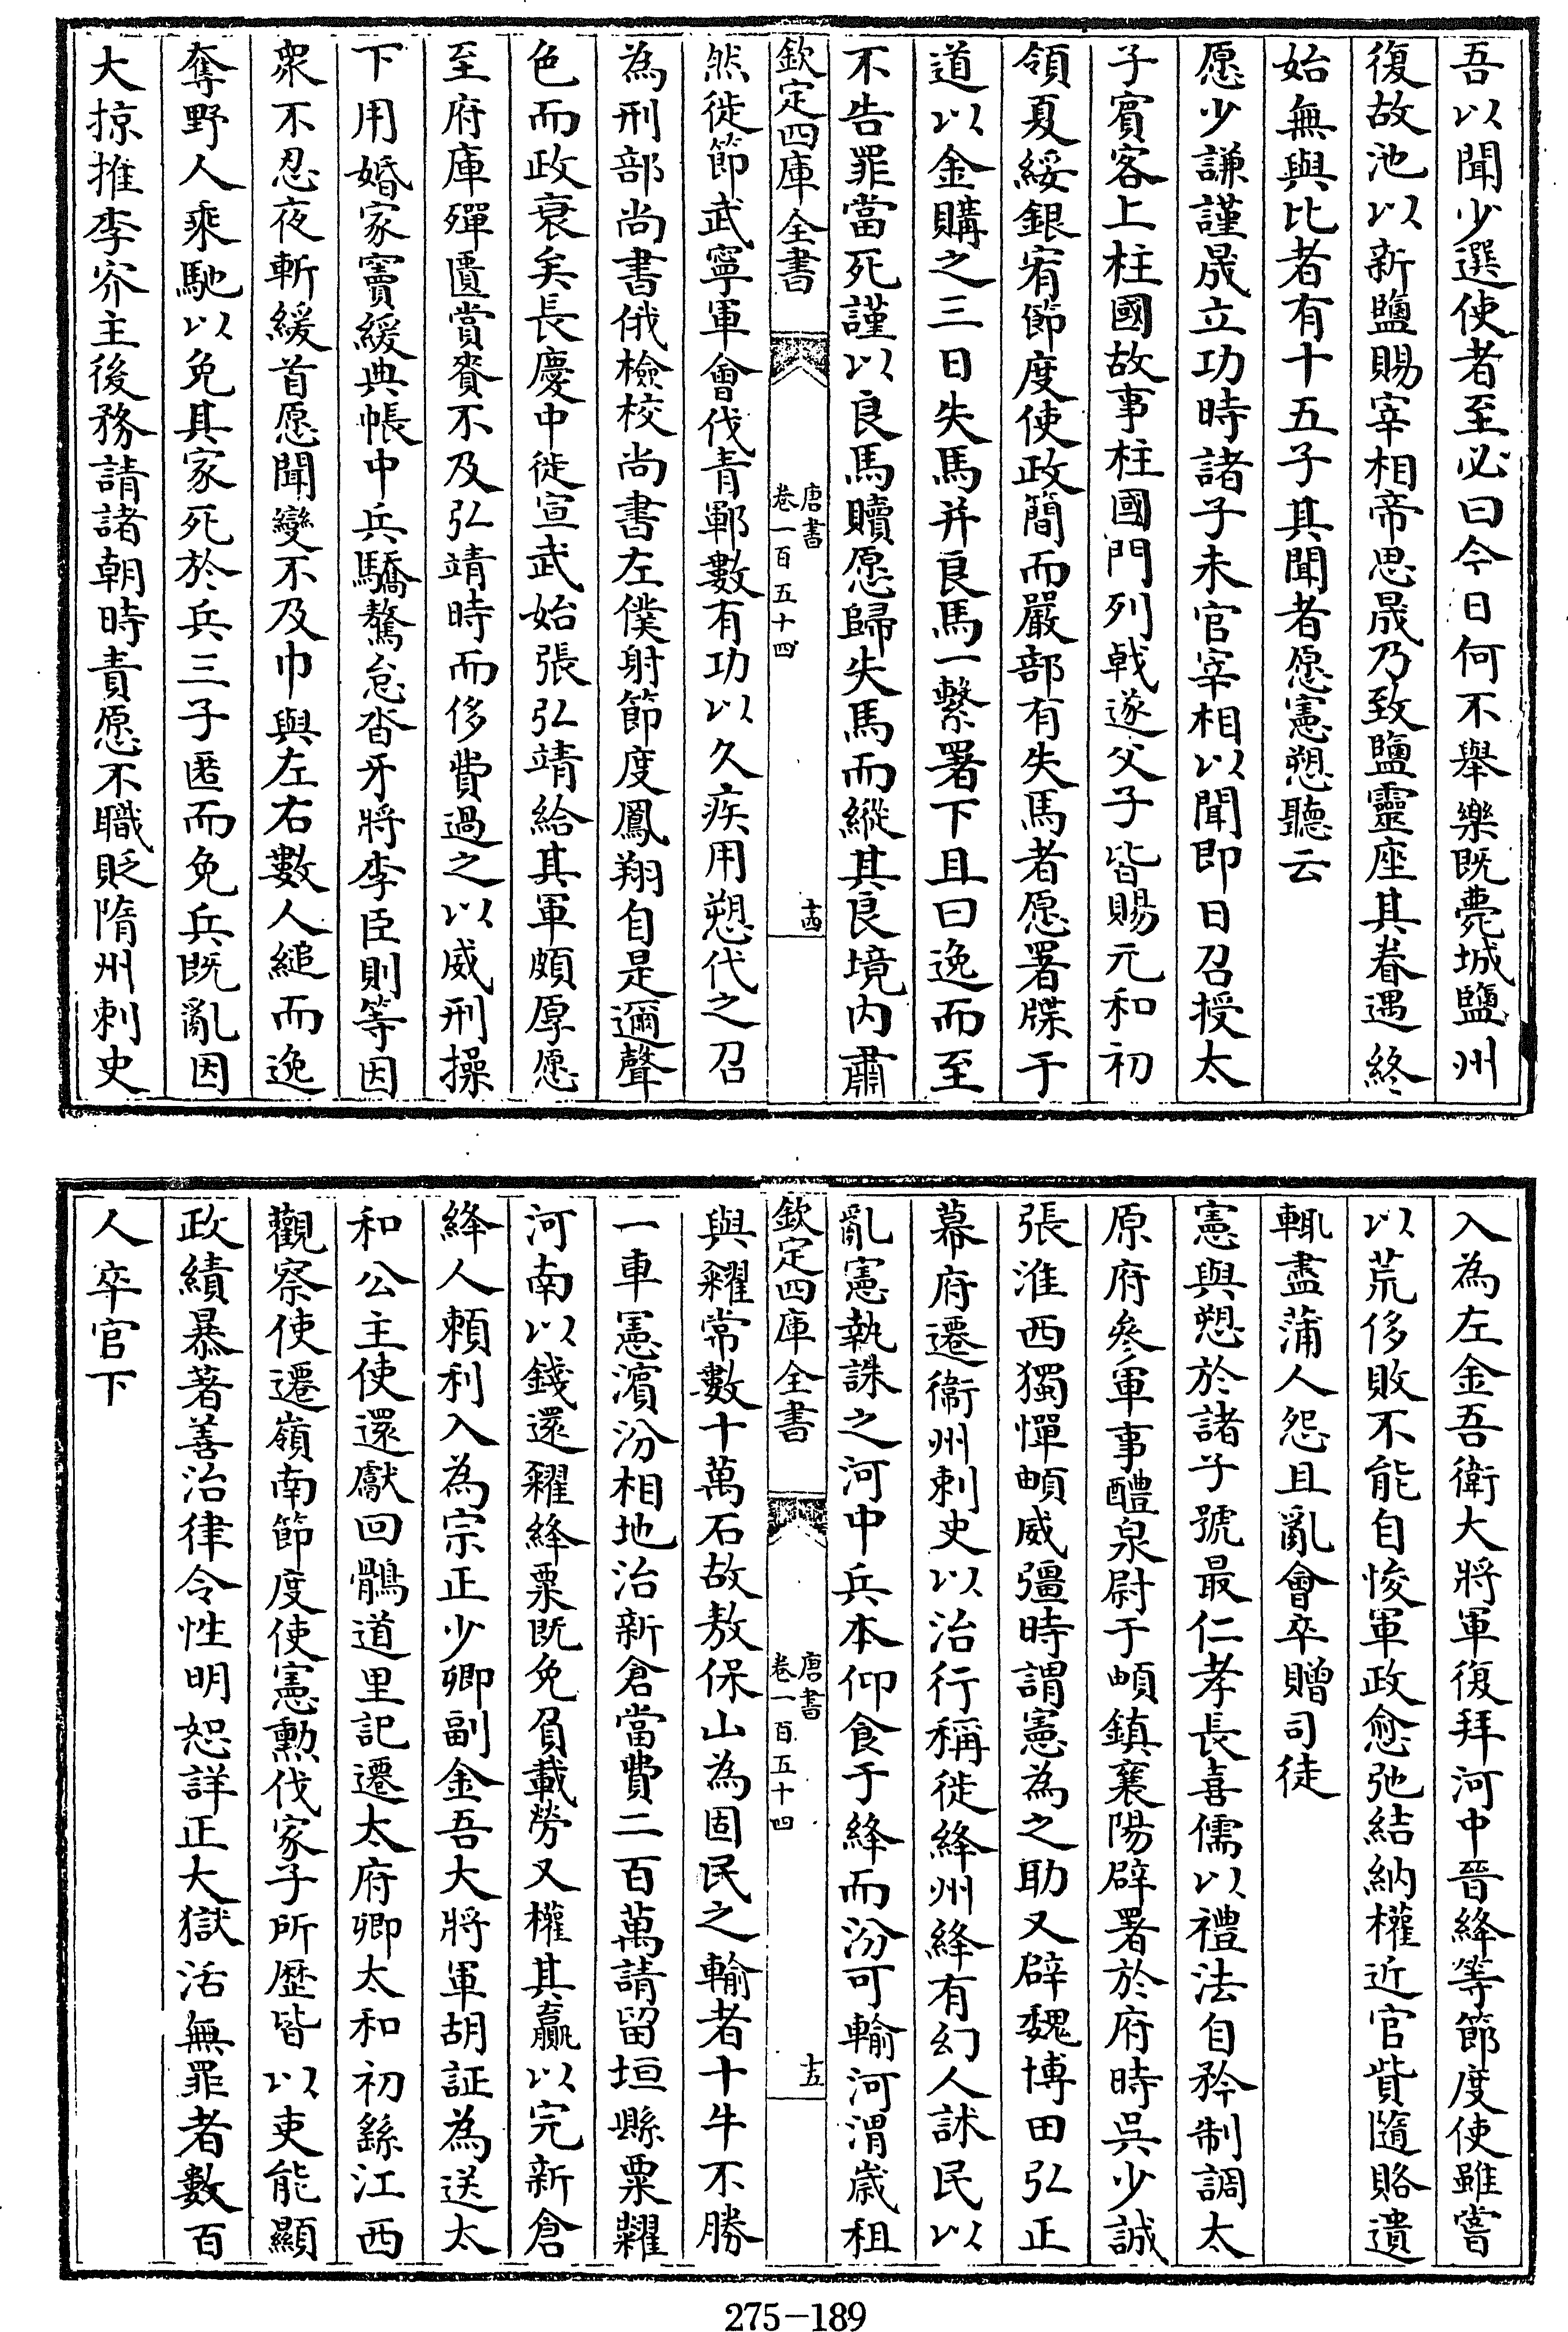 吾以聞少選使者至必曰今日何不舉樂既薨城鹽州
復故池以新鹽賜宰相帝思晟乃致鹽靈座其眷遇終
始無與比者有十五子其聞者愿憲愬聽云
愿少謙謹晟立功時諸子未官宰相以聞即日召授太
子賓客上柱國故事柱國門列戟遂父子皆賜元和初
領夏綏銀宥節度使政簡而嚴部有失馬者愿署牒于
道以金購之三日失馬并良馬一繫署下且曰逸而至
不告罪當死謹以良馬贖愿歸失馬而縱其良境内肅
欽定四庫全書
唐書
卷一百五十四
十四
然徙節武寧軍會伐青鄆數有功以久疾用愬代之召
為刑部尚書俄檢校尚書左僕射節度鳳翔自是邇聲
色而政衰矣長慶中徙宣武始張弘靖給其軍頗厚愿
至府庫殫匱賞賚不及弘靖時而侈費過之以威刑操
下用婚家竇緩典帳中兵驕驁怠沓牙將李臣則等因
衆不忍夜斬緩首愿聞變不及巾與左右數人縋而逸
奪野人乘馳以免其家死於兵三子匿而免兵既亂因
大掠推李㝏主後務請諸朝時責愿不職貶隋州刺史
入為左金吾衛大將軍復拜河中晉絳等節度使雖嘗
以荒侈敗不能自悛軍政愈弛結納權近官貲隨賂遺
輒盡蒲人怨且亂會卒贈司徒
憲與愬於諸子號最仁孝長喜儒以禮法自矜制調太
原府叅軍事醴泉尉于頔鎮襄陽辟署於府時吳少誠
張淮西獨憚頔威彊時謂憲為之助又辟魏博田弘正
幕府遷衞州刺史以治行稱徙絳州絳有幻人訹民以
亂憲執誅之河中兵本仰食于絳而汾可輸河渭歲租
欽定四庫全書
唐書
卷一百五十四
十五
與糴常數十萬石故敖保山為固民之輸者十牛不勝
一車憲濵汾相地治新倉當費二百萬請留垣縣粟糶
河南以錢還糴絳粟既免負載勞又權其贏以完新倉
絳人賴利入為宗正少卿副金吾大將軍胡証為送太
和公主使還獻回鶻道里記遷太府卿太和初繇江西
觀察使遷嶺南節度使憲勲伐家子所歷皆以吏能顯
政績暴著善治律令性明恕詳正大獄活無罪者數百
人卒官下
275-189